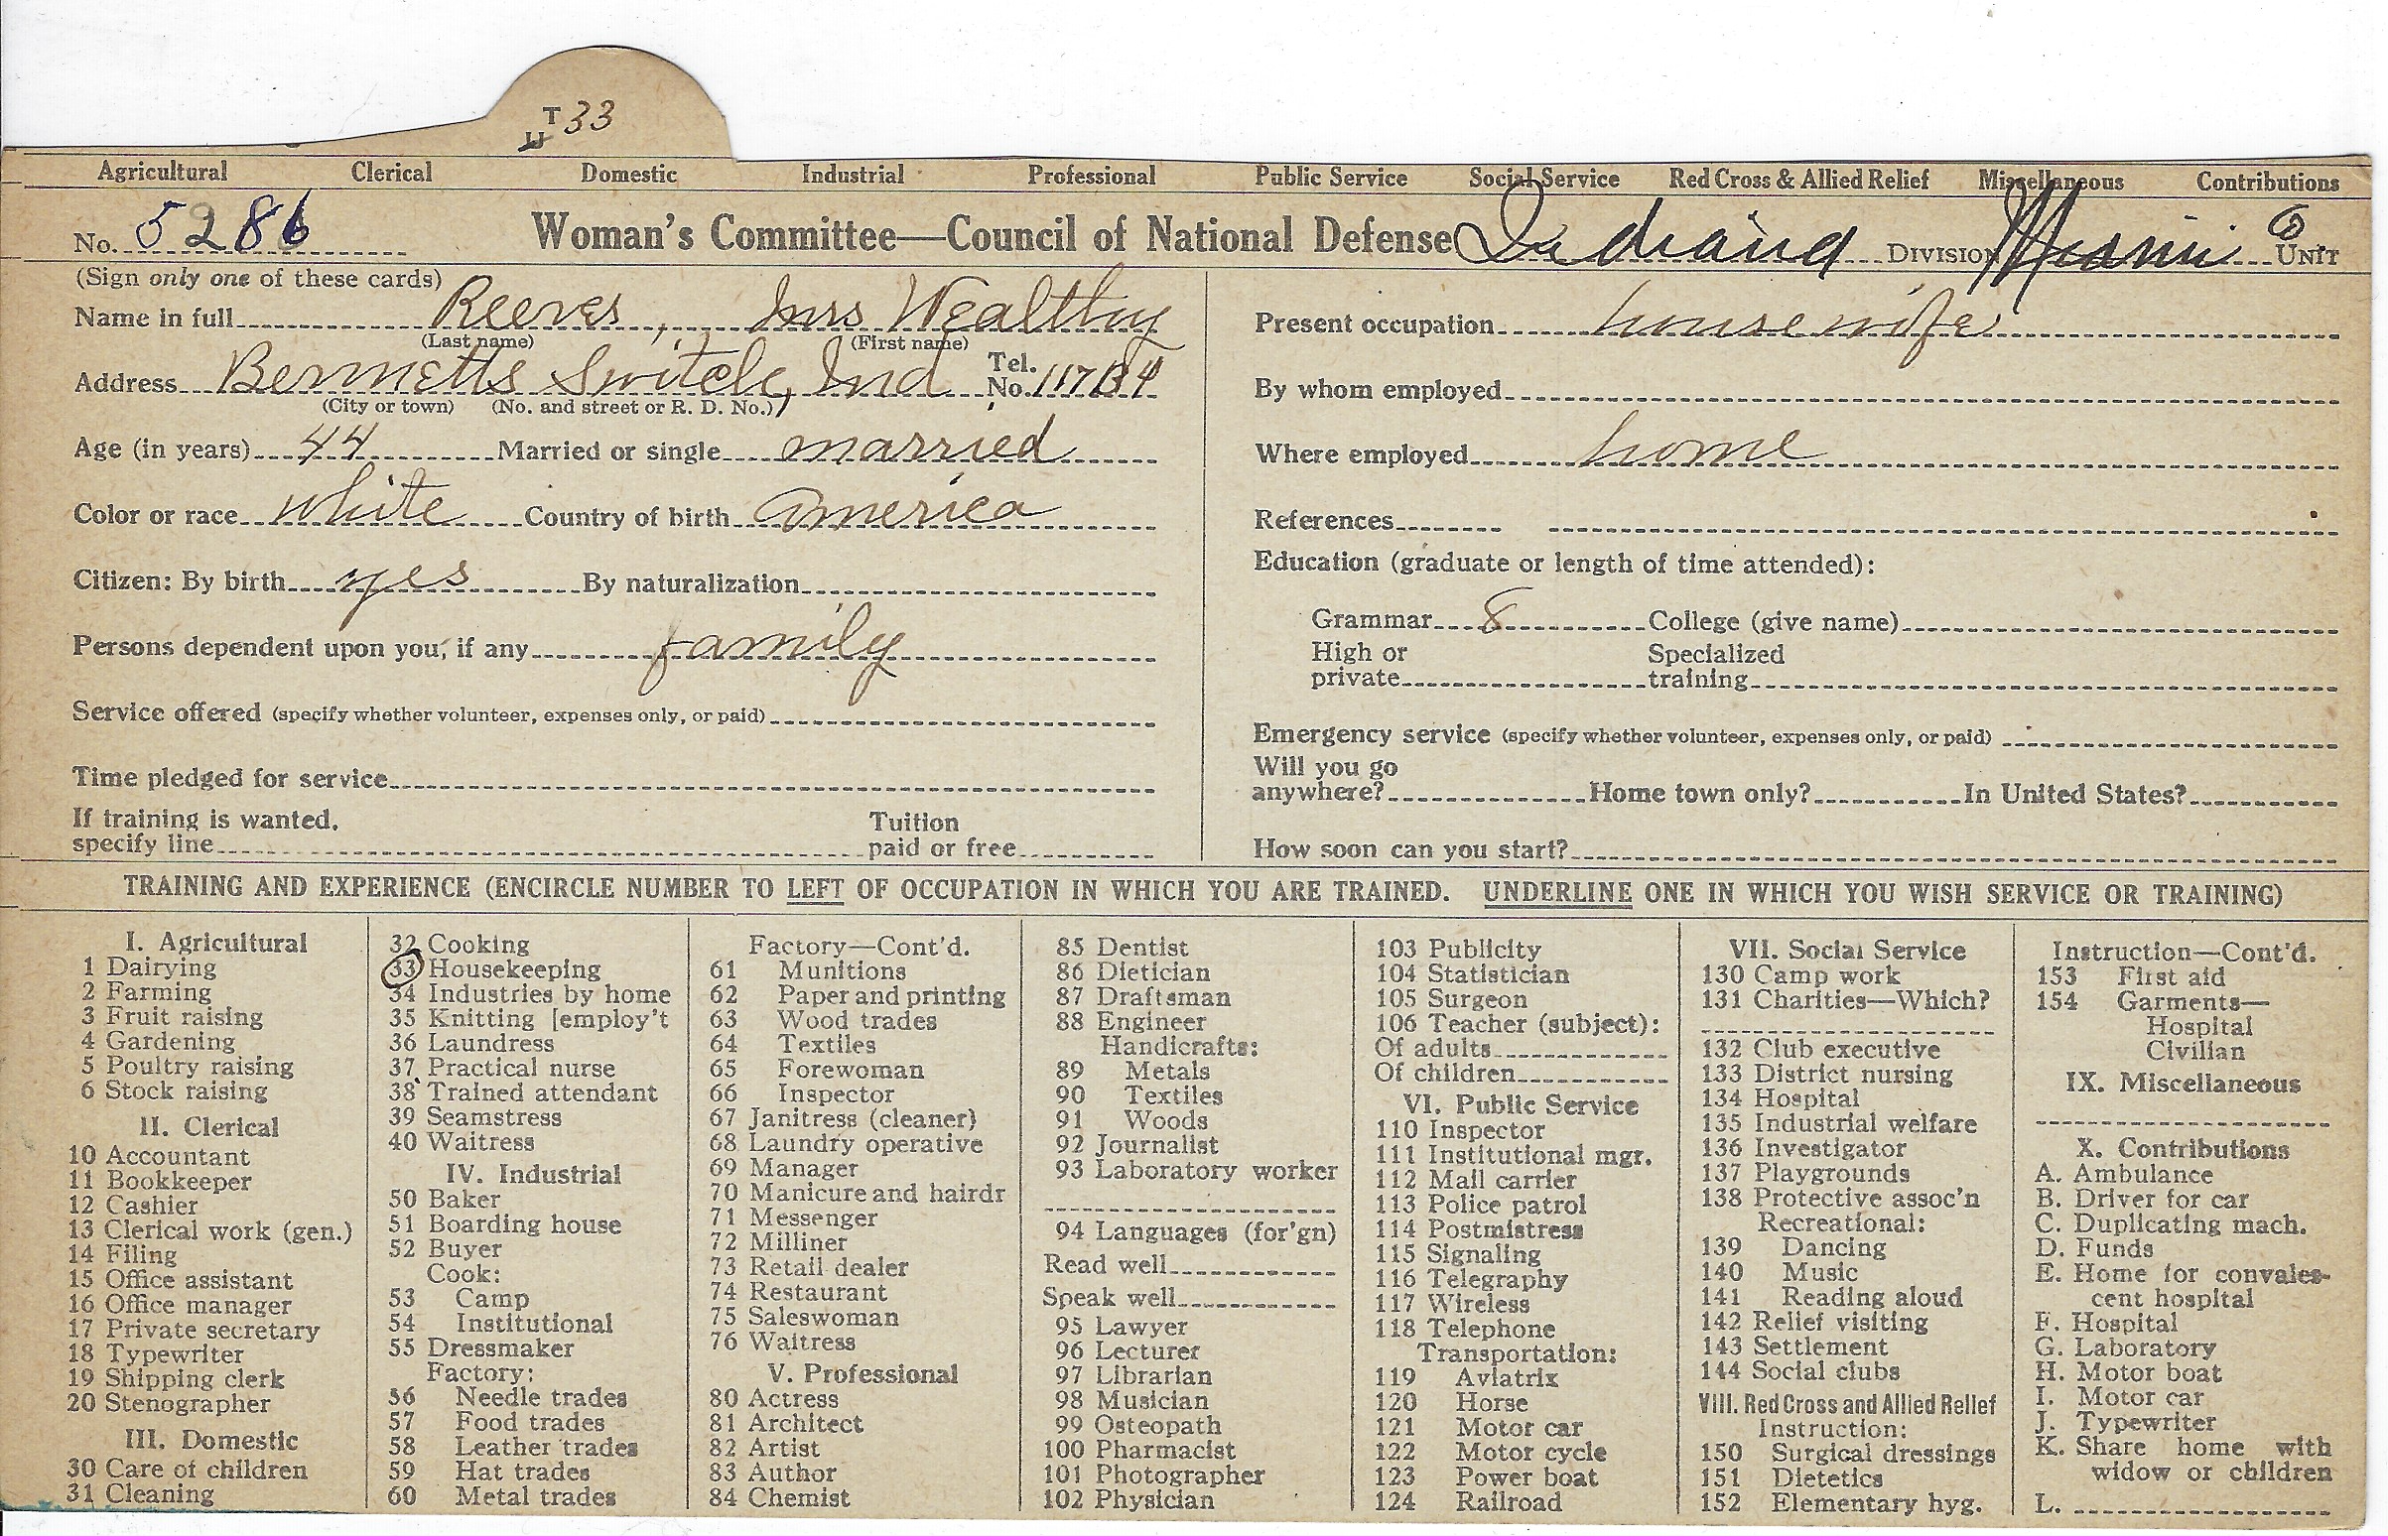 T 33
W
Agricultural Clerical Domestic Industrial Professional Public Service Social Service Red Cross & Allied Relief Miscellaneous Contributions
No. 5286 Woman's Committee—Council of National Defense Indiana DIVISION Miami 6 UNIT
(Sign only one of these cards)
Name in full Reeves, Mrs Wealthy
(Last name) (First name)
Address Bennetts Switch, Ind Tel. No. 117B4
(City or town) (No. and street or R. D. No.)
Age (in years) 44 Married or single married
Color or race white Country of birth America
Citizen: By birth yes By naturalization
Persons dependent upon you, if any family
Service offered (specify whether volunteer, expenses only, or paid)
Time pledged for service
If training is wanted, specify line Tuition paid or free
Present occupation housewife
By whom employed
Where employed home
References
Education (graduate or length of time attended):
Grammar 8 College (give name)
High or private Specialized training
Emergency service (specify whether volunteer, expenses only, or paid)
Will you go anywhere? Home town only? In United States?
How soon can you start?
TRAINING AND EXPERIENCE (ENCIRCLE NUMBER TO LEFT OF OCCUPATION IN WHICH YOU ARE TRAINED. UNDERLINE ONE IN WHICH YOU WISH SERVICE OR TRAINING)
I. Agricultural
1 Dairying
2 Farming
3 Fruit raising
4 Gardening
5 Poultry raising
6 Stock raising
II. Clerical
10 Accountant
11 Bookkeeper
12 Cashier
13 Clerical work (gen.)
14 Filing
15 Office assistant
16 Office manager
17 Private secretary
18 Typewriter
19 Shipping clerk
20 Stenographer
III. Domestic
30 Care of children
31 Cleaning
32 Cooking
33 Housekeeping
34 Industries by home
35 Knitting [employ't
36 Laundress
37 Practical nurse
38 Trained attendant
39 Seamstress
40 Waitress
IV. Industrial
50 Baker
51 Boarding house
52 Buyer
Cook:
53 Camp
54 Institutional
55 Dressmaker
Factory:
56 Needle trades
57 Food trades
58 Leather trades
59 Hat trades
60 Metal trades
Factory—Cont'd.
61 Munitions
62 Paper and printing
63 Wood trades
64 Textiles
65 Forewoman
66 Inspector
67 Janitress (cleaner)
68 Laundry operative
69 Manager
70 Manicure and hairdr
71 Messenger
72 Milliner
73 Retail dealer
74 Restaurant
75 Saleswoman
76 Waitress
V. Professional
80 Actress
81 Architect
82 Artist
83 Author
84 Chemist
85 Dentist
86 Dietician
87 Draftsman
88 Engineer
Handicrafts:
89 Metals
90 Textiles
91 Woods
92 Journalist
93 Laboratory worker
94 Languages (for'gn)
Read well
Speak well
95 Lawyer
96 Lecturer
97 Librarian
98 Musician
99 Osteopath
100 Pharmacist
101 Photographer
102 Physician
103 Publicity
104 Statistician
105 Surgeon
106 Teacher (subject):
Of adults
Of children
VI. Public Service
110 Inspector
111 Institutional mgr.
112 Mail carrier
113 Police patrol
114 Postmistress
115 Signaling
116 Telegraphy
117 Wireless
118 Telephone
Transportation:
119 Aviatrix
120 Horse
121 Motor car
122 Motor cycle
123 Power boat
124 Railroad
VII. Social Service
130 Camp work
131 Charities—Which?
132 Club executive
133 District nursing
134 Hospital
135 Industrial welfare
136 Investigator
137 Playgrounds
138 Protective assoc'n
Recreational:
139 Dancing
140 Music
141 Reading aloud
142 Relief visiting
143 Settlement
144 Social clubs
VIII. Red Cross and Allied Relief
Instruction:
150 Surgical dressings
151 Dietetics
152 Elementary hyg.
Instruction—Cont'd.
153 First aid
154 Garments—
Hospital
Civilian
IX. Miscellaneous
X. Contributions
A. Ambulance
B. Driver for car
C. Duplicating mach.
D. Funds
E. Home for convales-
cent hospital
F. Hospital
G. Laboratory
H. Motor boat
I. Motor car
J. Typewriter
K. Share home with
widow or children
L.